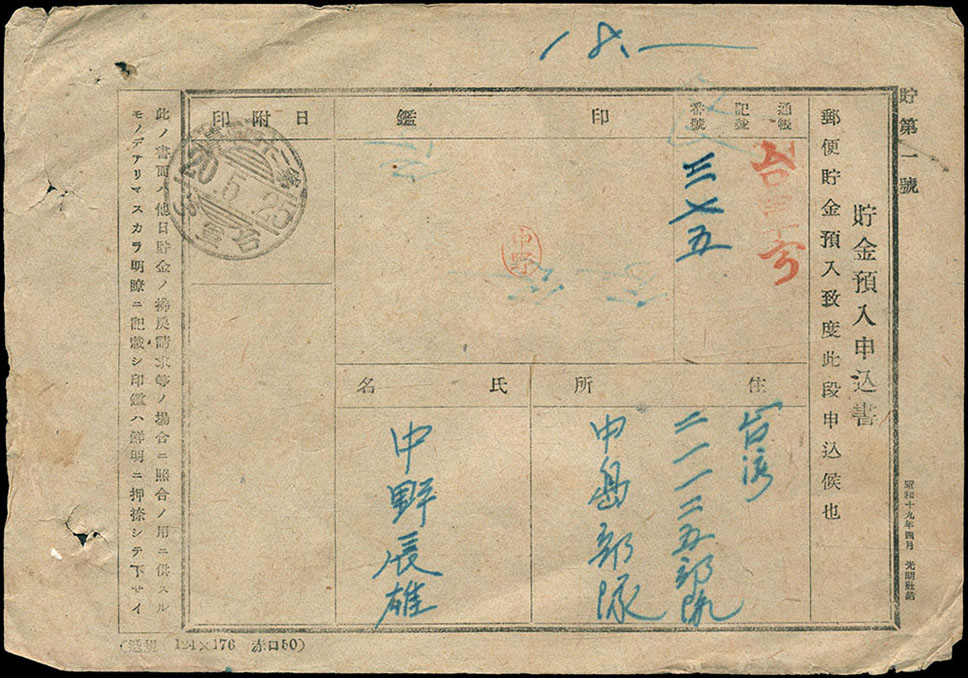 一八、一
貯第一號
貯金預入申込書
昭和十九年四月
郵便貯金預入致度此段申込候也
通帳
記號
番號
三七五
印鑑
中野
日附印
20.5.25
住所
台湾
二一一二五部隊
中島部隊
氏名
中野辰雄
此ノ書面ハ他日貯金ノ拂戻請求等ノ場合ニ照合ノ用ニ供スル
モノデアリマスカラ明瞭ニ記載シ印鑑ハ鮮明ニ押捺シテ下サイ
124×176